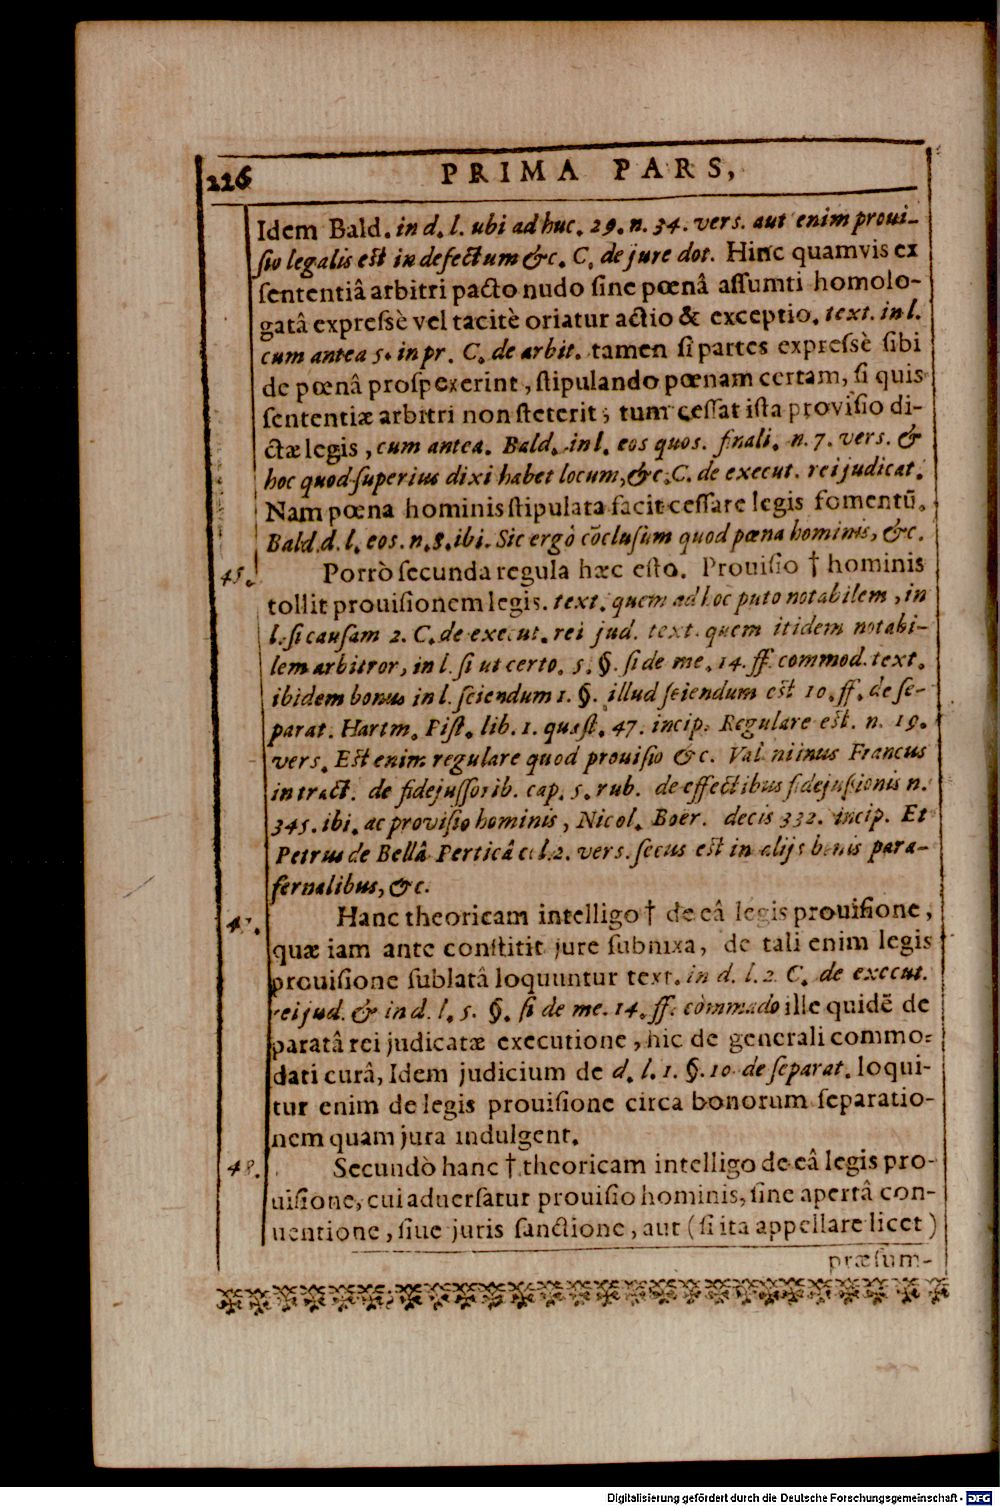 226 PRIMA PARS,
Idem Bald. in d. l. ubi adhuc. 29. n. 34. vers. aut enim proui-
ſio legalis eſt in defectum &c. C. de jure dot. Hinc quamvis ex
ſententiâ arbitri pacto nudo ſine pœnâ aſſumti homolo-
gatâ expreſsè vel tacitè oriatur actio & exceptio. text. in l.
cum antea 5. in pr. C. de arbit. tamen ſi partes expreſsè ſibi
de pœnâ proſpexerint, ſtipulando pœnam certam, ſi quis
ſententiæ arbitri non ſteterit; tum ceſſat iſta proviſio di-
ctæ legis, cum antea. Bald. in l. eos quos. finali. n. 7. vers. &
hoc quod ſuperius dixi habet locum, &c. C. de execut. rei judicat.
Nam pœna hominis ſtipulata facit ceſſare legis fomentũ.
Bald. d. l. eos. n. 8. ibi. Sic ergò cõcluſum quod pœna hominis, &c.
45. Porrò ſecunda regula hæc eſto. Prouiſio † hominis
tollit prouiſionem legis. text. quem ad hoc puto notabilem, in
l. ſi cauſam 2. C. de execut. rei jud. text. quem itidem notabi-
lem arbitror, in l. ſi ut certo. 5. §. ſi de me. 14. ff. commod. text.
ibidem bonus in l. ſciendum 1. §. illud ſciendum eſt 10. ff. de ſe-
parat. Hartm. Piſt. lib. 1. quæſt. 47. incip. Regulare eſt. n. 19.
vers. Eſt enim regulare quod prouiſio &c. Val niinus Francus
in tract. de fidejuſſorib. cap. 5. rub. de effectibus fidejuſſionis n.
345. ibi. ac proviſio hominis, Nicol. Boër. decis 332. incip. Et
Petrus de Bellâ Perticâ l. 2. vers. ſecus eſt in alijs bonis para-
fernalibus, &c.
47. Hanc theoricam intelligo † de eâ legis prouiſione,
quæ iam ante conſtitit jure ſubnixa, de tali enim legis
prouiſione ſublatâ loquuntur text. in d. l. 2. C. de execut.
rei jud. & in d. l. 5. §. ſi de me. 14. ff. commado ille quidẽ de
paratâ rei judicatæ executione, hic de generali commo-
dati curâ, Idem judicium de d. l. 1. §. 10. de ſeparat. loqui-
tur enim de legis prouiſione circa bonorum ſeparatio-
nem quam jura indulgent.
48. Secundò hanc † theoricam intelligo de eâ legis pro-
uiſione, cui aduerſatur prouiſio hominis, ſine apertâ con-
uentione, ſiue juris ſanctione, aut (ſi ita appellare licet)
præſum-
Digitalisierung gefördert durch die Deutsche Forschungsgemeinschaft - DFG